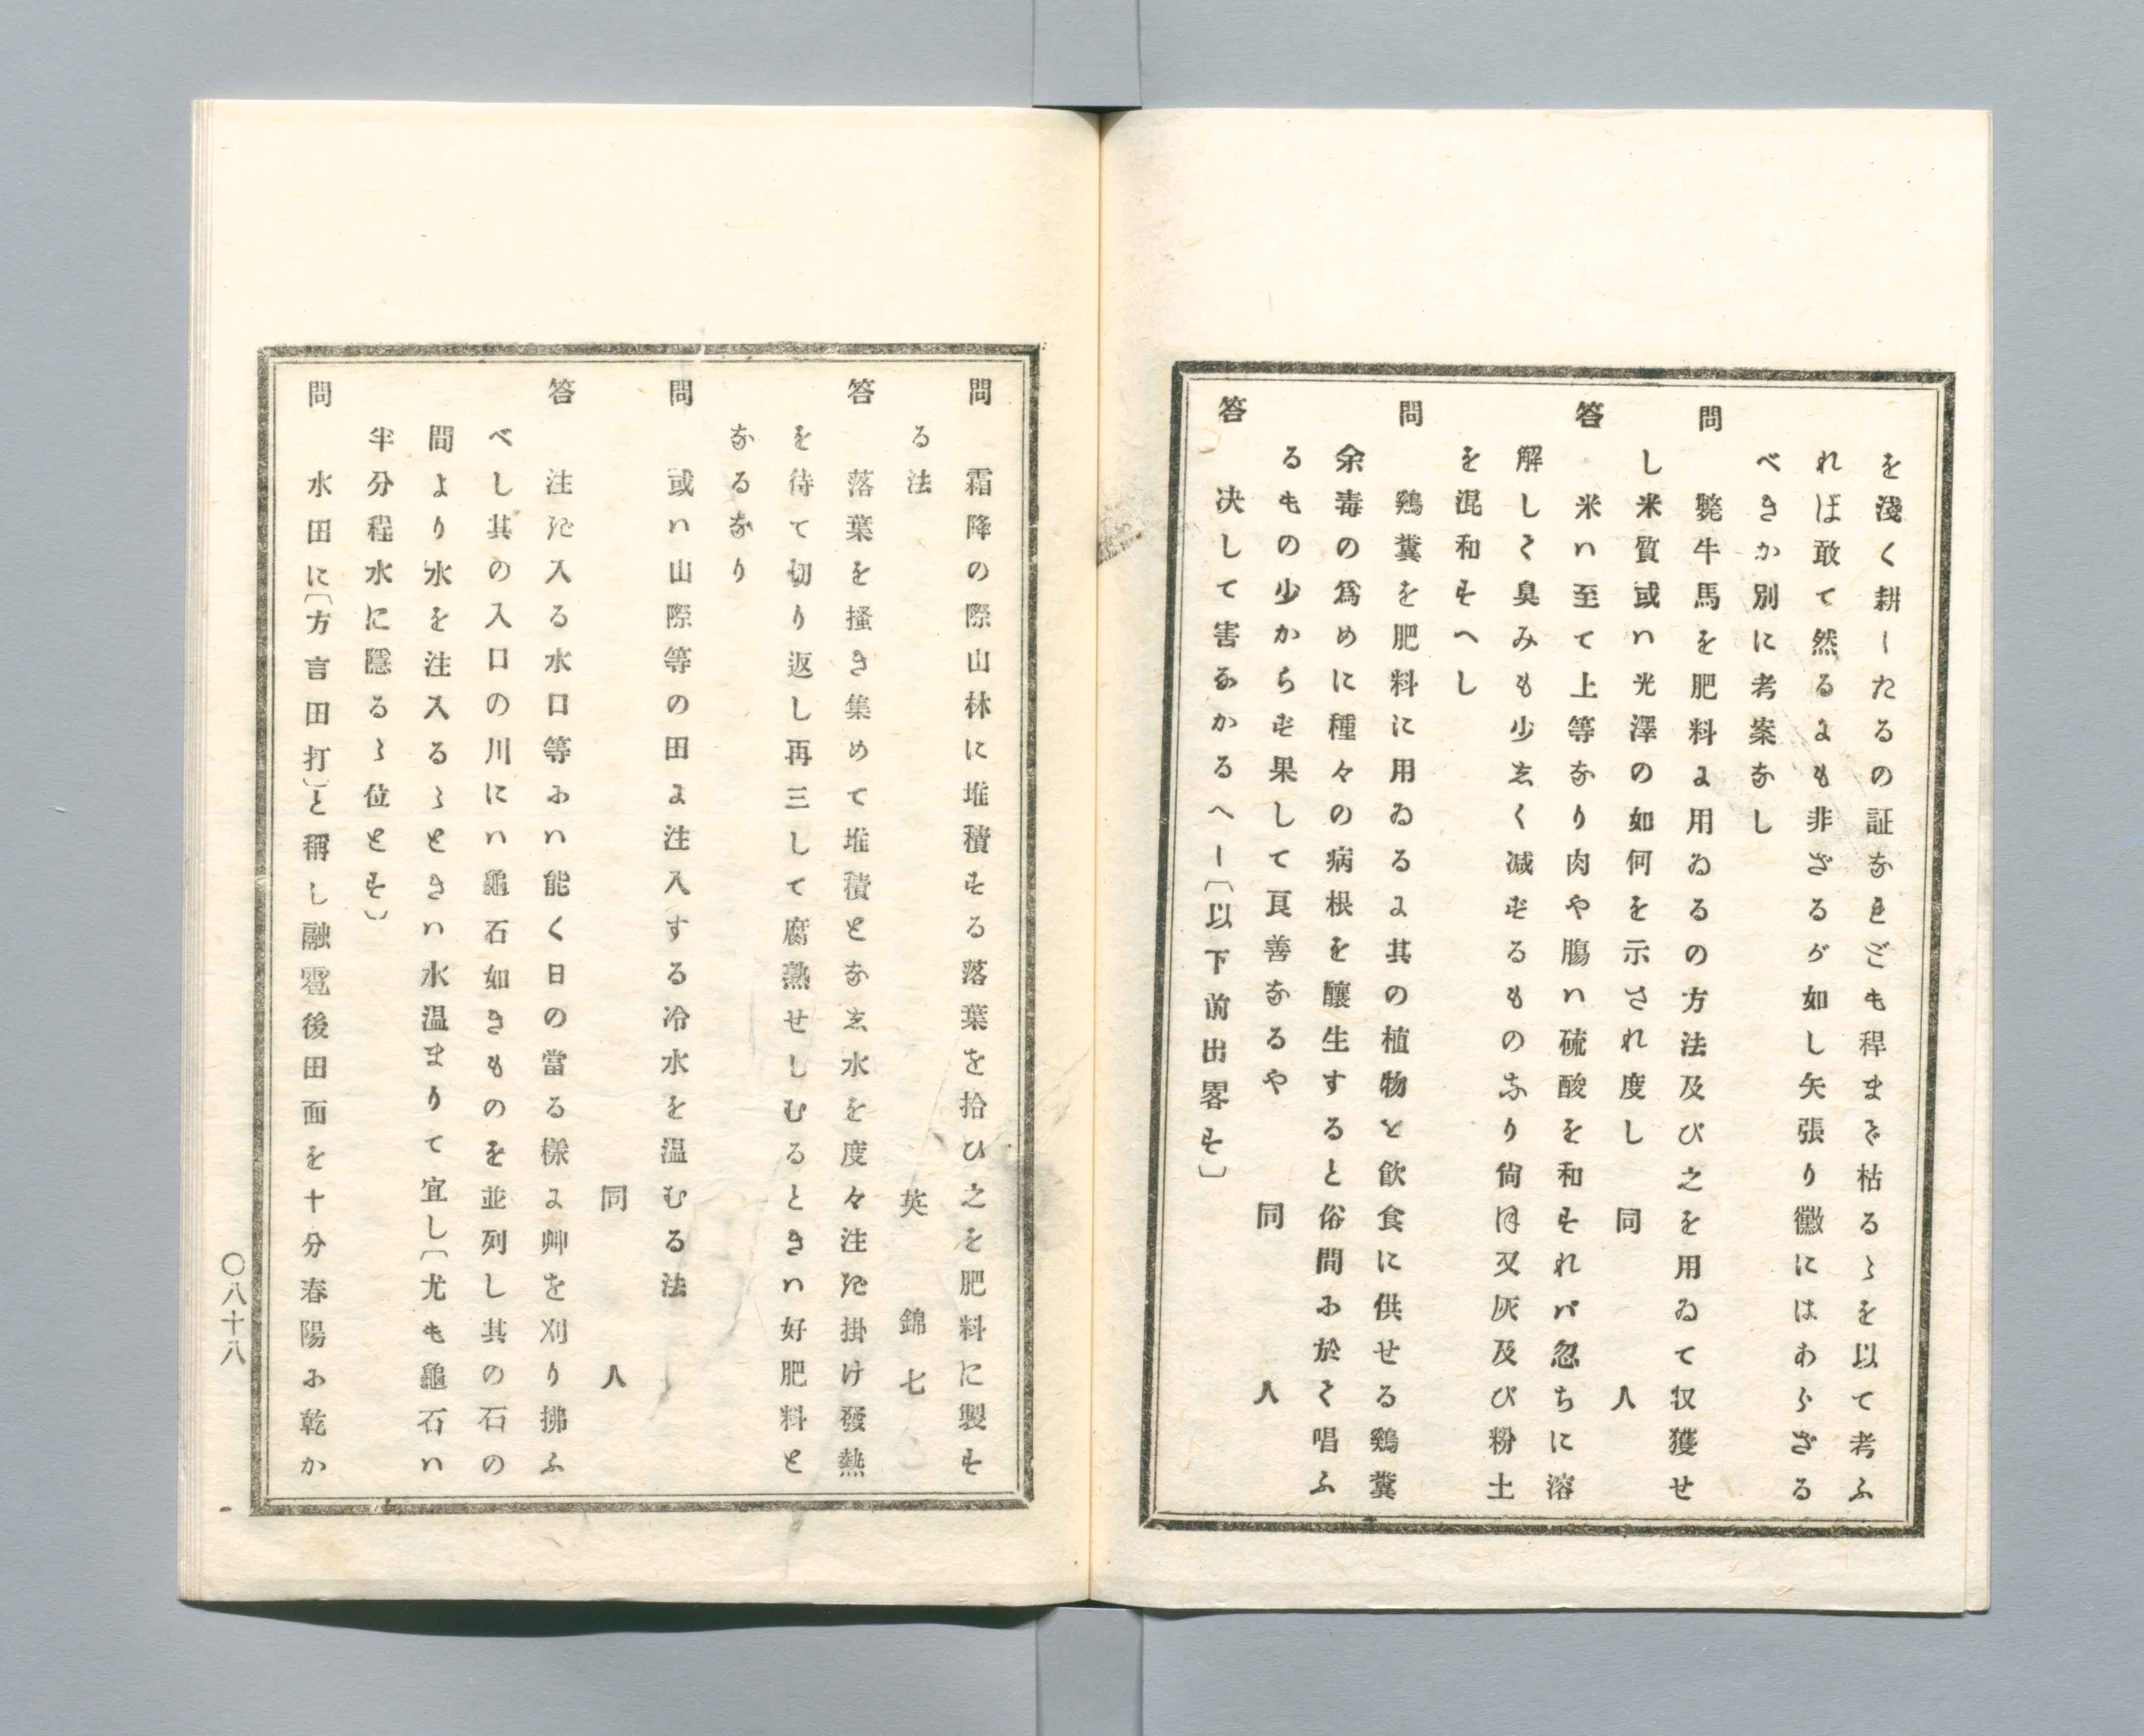 を淺く耕したるの証なれども稈まで枯るゝを以て考ふ
れば敢て然るにも非ざるが如し矢張り黴にはあらざる
べきか別に考案なし
問 斃牛馬を肥料に用ゐるの方法及び之を用ゐて収獲せ
し米質或ハ光澤の如何を示され度し 同人
答 米ハ至て上等なり肉や膓ハ硫酸を和すれバ忽ちに溶
解して臭みも少しく减ずるものなり尙ほ又灰及び粉土
を混和すへし
問 鷄糞を肥料に用ゐるに其の植物を飮食に供せる鷄糞
余毒の爲めに種々の病根を釀生すると俗間に於て唱ふ
るもの少からず果して良善なるや 同人
答 决して害なかるへし〔以下前出畧す〕
問 霜降の際山林に堆積する落葉を拾ひ之を肥料に製す
る法 英錦七
答 落葉を搔き集めて堆積となし水を度々注ぎ掛け發熱
を待て切り返し再三して腐熟せしむるときハ好肥料と
なるなり
問 或ハ山際等の田に注入する冷水を温むる法
同人
答 注ぎ入る水口等にハ能く日の當る樣に艸を刈り拂ふ
べし其の入口の川にハ龜石如きものを並列し其の石の
間より水を注入るゝときハ水温まりて宜し〔尤も龜石ハ
半分程水に隱るゝ位とす〕
問 水田に〔方言田打〕と稱し融雪後田面を十分春陽に乾か
〇八十八